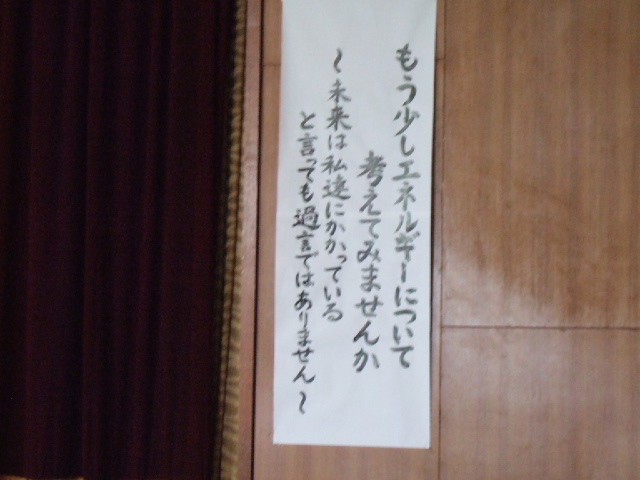 もう少しエネルギーについて
考えてみませんか
～未来は私達にかかっている
と言っても過言ではありません～